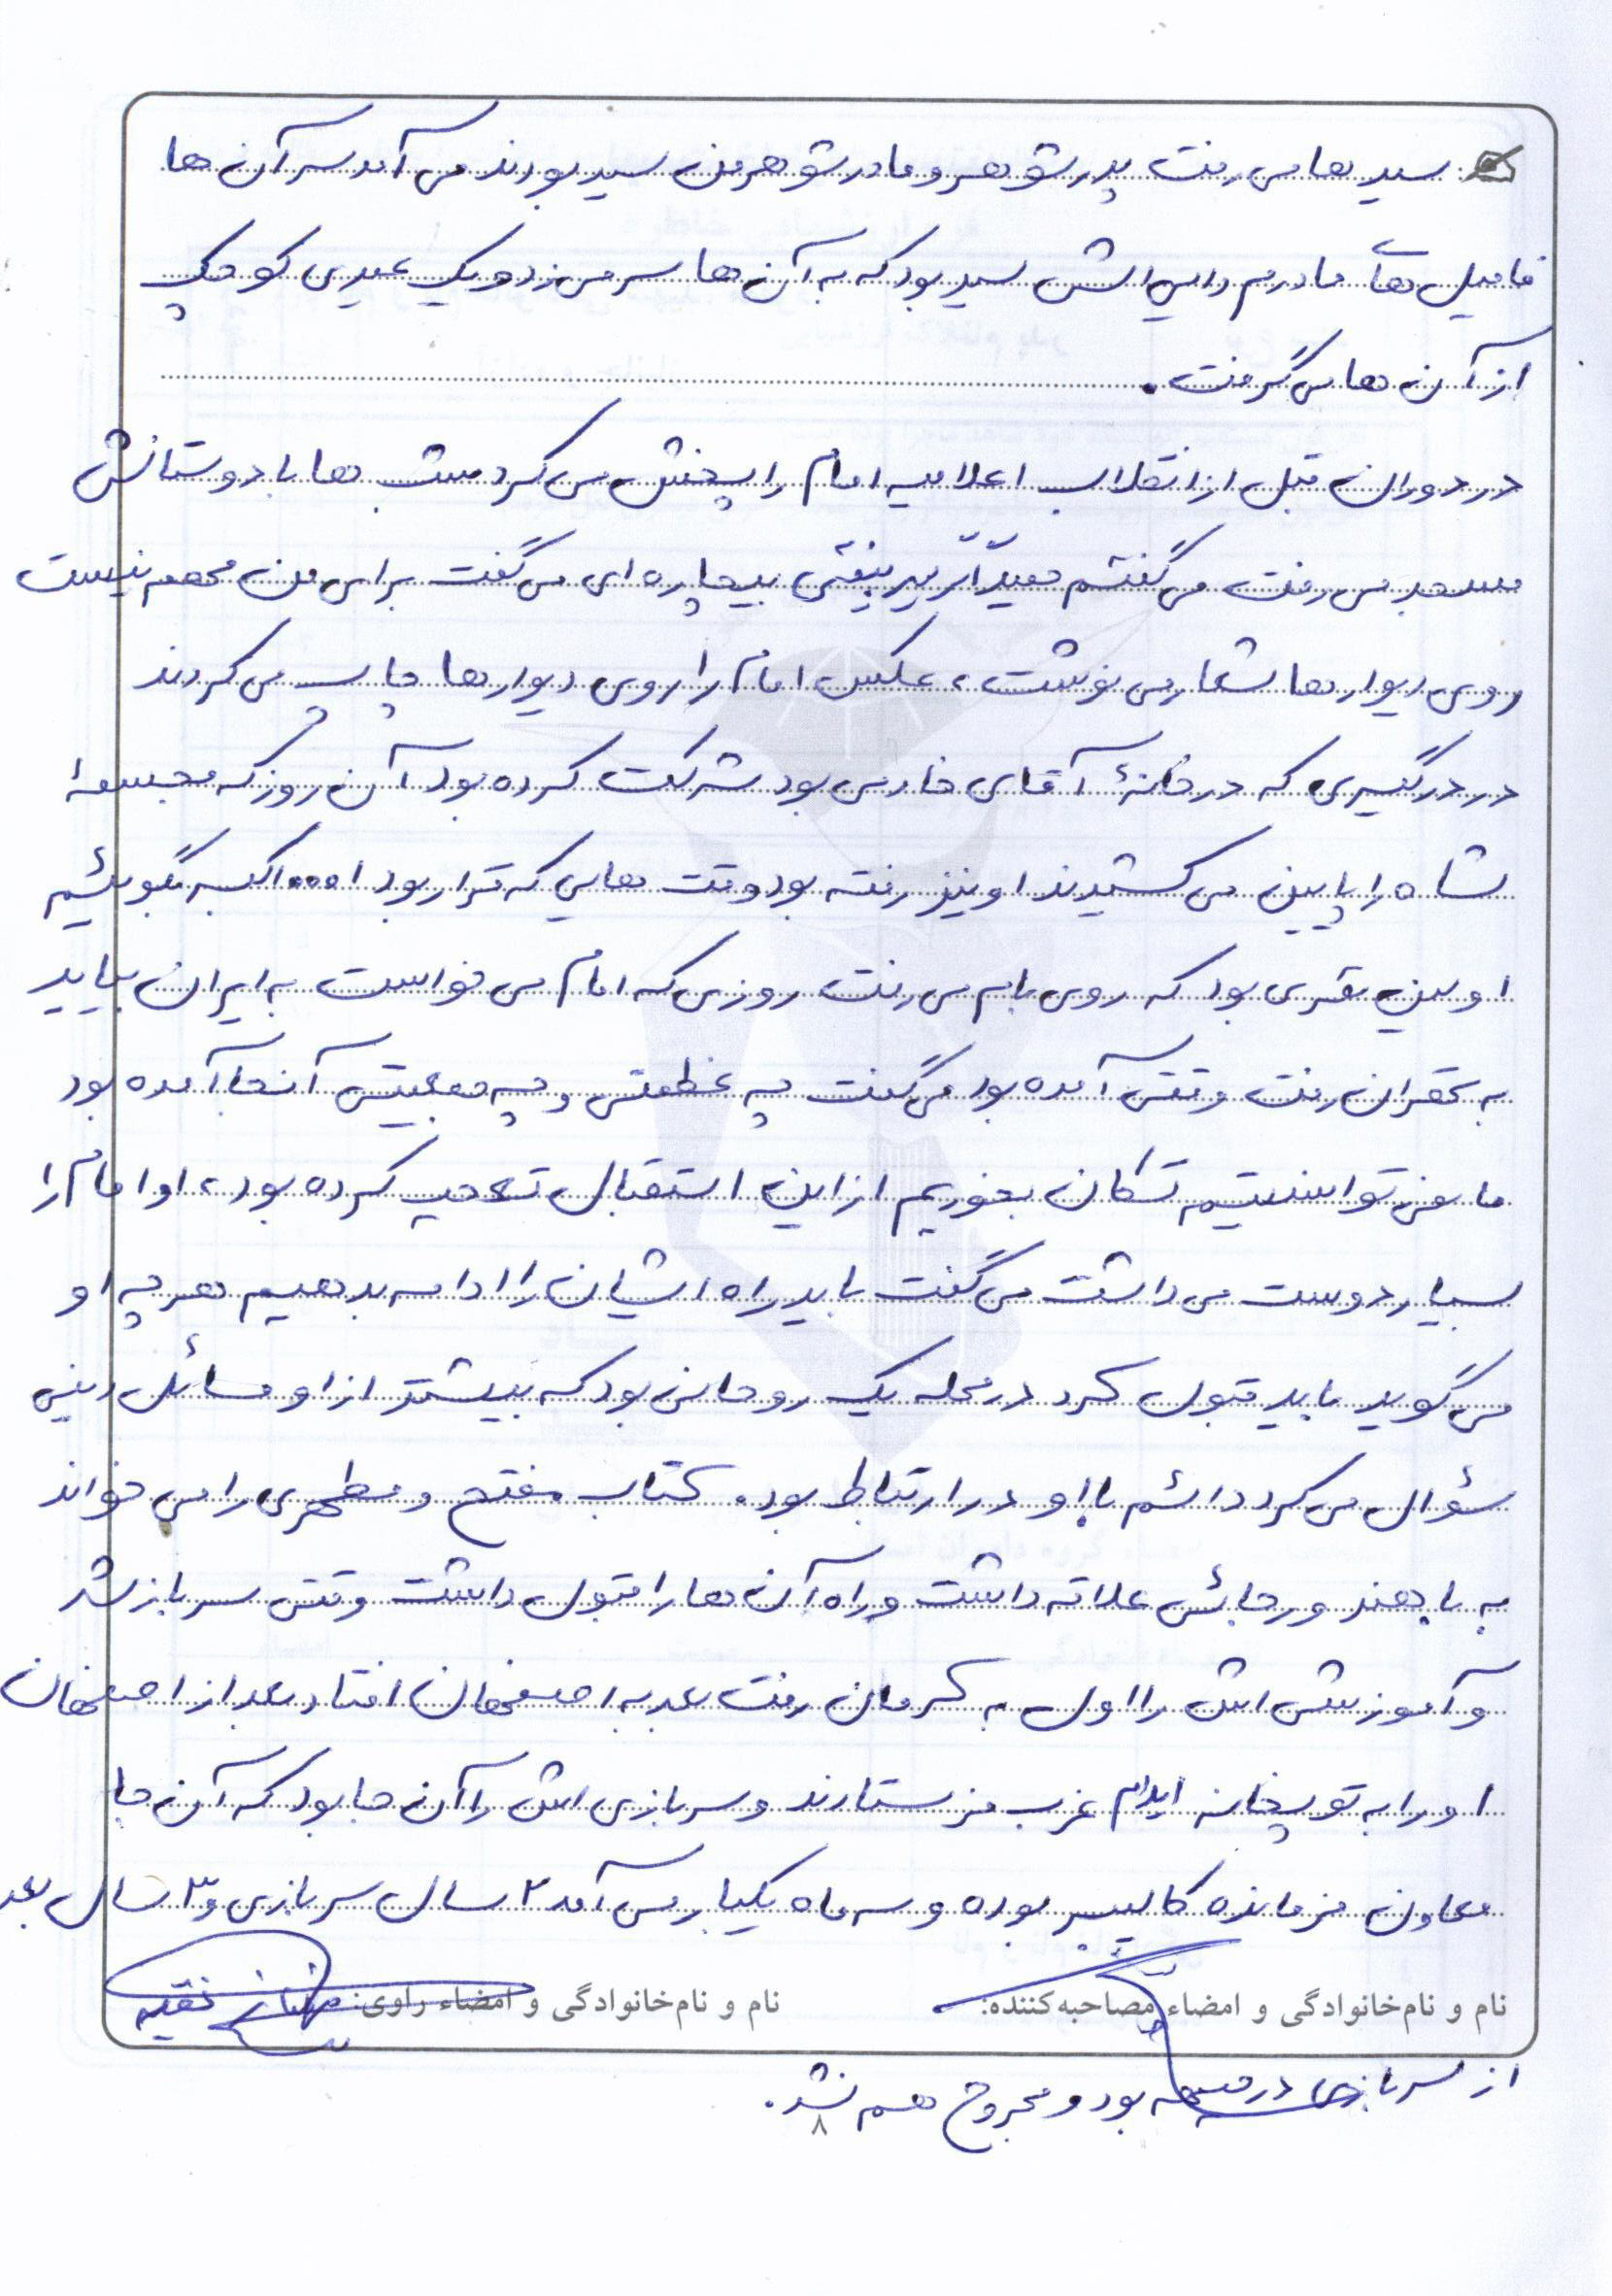 سید ها می رفت پدر شوهر و مادر شوهر من سید بودند می آمد سر آن ها
فامیل های مادرم دایی اش سید بود که به آن ها سر می زد و یک عیدی کوچک
از آن ها می گرفت.
در دوران قبل از انقلاب اعلامیه امام را پخش می کرد شب ها با دوستانش
مسجد می رفت می گفتم حمید اگر تیر بیفتی بیچاره ای می گفت برای من مهم نیست
روی دیوارها شعار می نوشت، عکس امام را روی دیوارها چاپ می کردند
در درگیری که در خانهٔ آقای خادمی بود شرکت کرده بود آن روز که مجسمهٔ
شاه را پایین می کشیدند او نیز رفته بود وقت هایی که قرار بود ا... اکبر بگوییم
اولین نفری بود که روی بام می رفت روزی که امام می خواست به ایران بیاید
به تهران رفت وقتی آمده بود می گفت چه عظمتی و چه جمعیتی آنجا آمده بود
ما نمی توانستیم تکان بخوریم از این استقبال تعجب کرده بود، او امام را
بسیار دوست می داشت می گفت باید راه ایشان را ادامه بدهیم هر چه او
می گوید باید قبول کرد در محله یک روحانی بود که بیشتر از او مسائل دینی
سؤال می کرد دائم با او در ارتباط بود. کتاب مفتح و مطهری را می خواند
به باهنر و رجائی علاقه داشت و راه آن ها را قبول داشت وقتی سرباز شد
و آموزشی اش را اول به کرمان رفت بعد به اصفهان افتاد بعد از اصفهان
او را به توپخانه ایلام غرب فرستادند و سربازی اش را آن جا بود که آن جا
معاون فرمانده کالیبر بوده و سه ماه یکبار می آمد ۲ سال سربازی و ۳ سال بعد
نام و نام‌خانوادگی و امضاء مصاحبه‌کننده: نام و نام‌خانوادگی و امضاء راوی: فقیه
از سربازی در جبهه بود و مجروح هم نشد.
۸